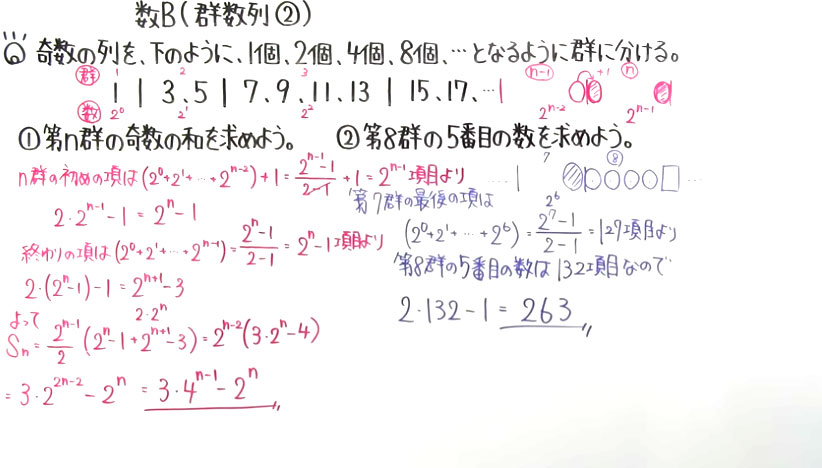 数B(群数列②)
奇数の列を、下のように、1個、2個、4個、8個、…となるように群に分ける。
群 1 2 3 n-1 +1 n
1 | 3、5 | 7、9、11、13 | 15、17、… |
数 2⁰ 2¹ 2² 2ⁿ⁻² 2ⁿ⁻¹
①第n群の奇数の和を求めよう。
n群の初めの項は(2⁰+2¹+…+2ⁿ⁻²)+1=(2ⁿ⁻¹-1)/(2-1)+1=2ⁿ⁻¹項目より
2・2ⁿ⁻¹-1=2ⁿ-1
終わりの項は(2⁰+2¹+…+2ⁿ⁻¹)=(2ⁿ-1)/(2-1)=2ⁿ-1項目より
2・(2ⁿ-1)-1=2ⁿ⁺¹-3
2・2ⁿ
よって
Sₙ=2ⁿ⁻¹/2(2ⁿ-1+2ⁿ⁺¹-3)=2ⁿ⁻²(3・2ⁿ-4)
=3・2²ⁿ⁻²-2ⁿ=3・4ⁿ⁻¹-2ⁿ
②第8群の5番目の数を求めよう。
…… | 7 8 …
2⁶
第7群の最後の項は
(2⁰+2¹+…+2⁶)=(2⁷-1)/(2-1)=127項目より
第8群の5番目の数は132項目なので
2・132-1=263